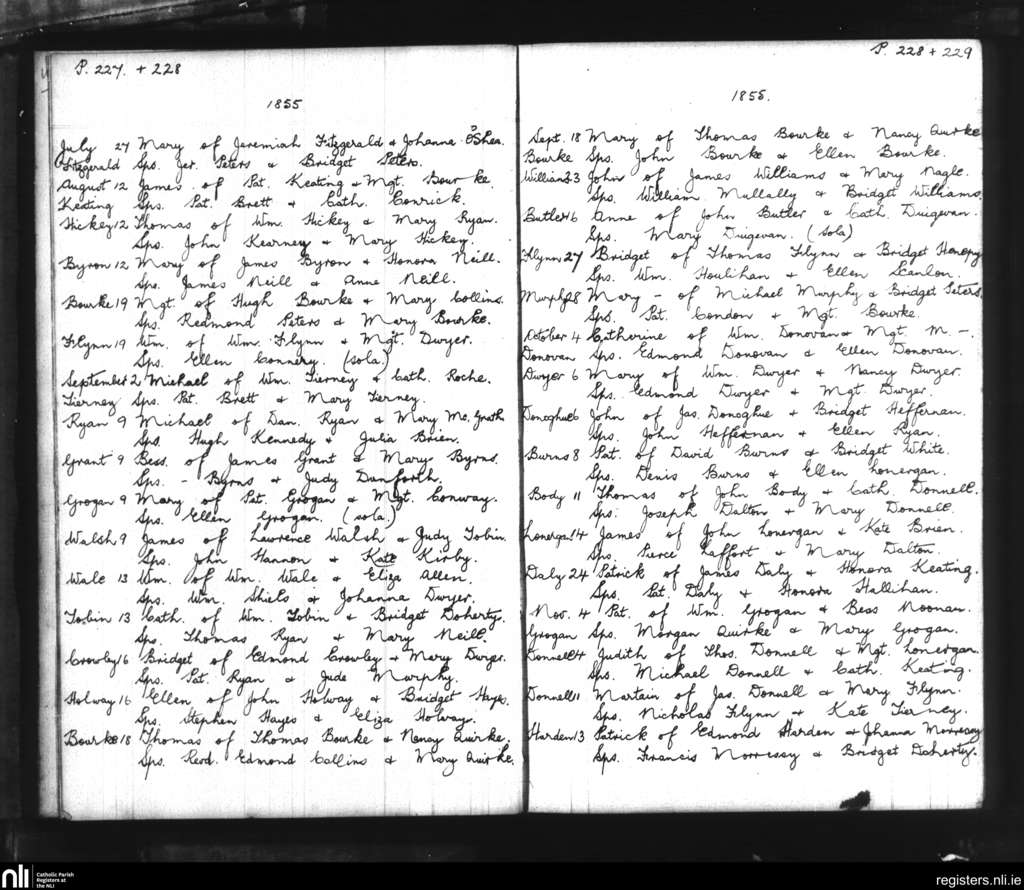 P. 227. + 228
1855
July 27 Mary of Jeremiah Fitzgerald & Johanna O'Shea.
Fitzgerald Sps. Jer. Peters & Bridget Peters.
August 12 James of Pat. Keating & Mgt. Bourke.
Keating Sps. Pat. Brett & Cath. Conrick.
Hickey 12 Thomas of Wm. Hickey & Mary Ryan.
Sps. John Kearney & Mary Hickey.
Byron 12 Mary of James Byron & Honora Neill.
Sps. James Neill & Anne Neill.
Bourke 19 Mgt. of Hugh Bourke & Mary Collins.
Sps. Redmond Peters & Mary Bourke.
Flynn 19 Wm. of Wm. Flynn & Mgt. Dwyer.
Sps. Ellen Connery. (sola)
September 2 Michael of Wm. Tierney & Cath. Roche.
Tierney Sps. Pat. Brett & Mary Tierney.
Ryan 9 Michael of Dan. Ryan & Mary Mc. Grath
Sps. Hugh Kennedy & Julia Brien.
Grant 9 Bess. of James Grant & Mary Byrns.
Sps. - Byrns & Judy Danforth.
Grogan 9 Mary of Pat. Grogan & Mgt. Conway.
Sps. Ellen Grogan. (sola.)
Walsh 9 James of Lawrence Walsh & Judy Tobin.
Sps. John Hannon & Kate Kirby.
Wale 13 Wm. of Wm. Wale & Eliza Allen.
Sps. Wm. Shiels & Johanna Dwyer.
Tobin 13 Cath. of Wm. Tobin & Bridget Doherty.
Sps. Thomas Ryan & Mary Neill.
Crowley 16 Bridget of Edmond Crowley & Mary Dwyer.
Sps. Pat. Ryan & Jude Murphy.
Holway 16 Ellen of John Holway & Bridget Hayes.
Sps. Stephen Hayes & Eliza Holway.
Bourke 18 Thomas of Thomas Bourke & Nancy Quirke.
Sps. Revd. Edmond Collins & Mary Quirke.
P. 228 + 229
1855.
Sept. 18 Mary of Thomas Bourke & Nancy Quirke
Bourke Sps. John Bourke & Ellen Bourke.
Williams 23 John of James Williams & Mary Nagle.
Sps. William Mullally & Bridget Williams.
Butler 16 Anne of John Butler & Cath. Duigevan.
Sps. Mary Duigevan. (sola)
Flynn 27 Bridget of Thomas Flynn & Bridget
Sps. Wm. Houlihan & Ellen Scanlon.
Murphy 28 Mary - of Michael Murphy & Bridget Peters.
Sps. Pat. Condon & Mgt. Bourke.
October 4 Catherine of Wm. Donovan & Mgt. M. -.
Donovan Sps. Edmond Donovan & Ellen Donovan.
Dwyer 6 Mary of Wm. Dwyer & Nancy Dwyer.
Sps. Edmond Dwyer & Mgt Dwyer.
Donoghue 6 John of Jas. Donoghue & Bridget Heffernan.
Sps. John Heffernan & Ellen Ryan.
Burns 8 Pat. of David Burns & Bridget White.
Sps. Denis Burns & Ellen Lonergan.
Body 11 Thomas of John Body & Cath. Donnell.
Sps: Joseph Dalton & Mary Donnell.
Lonergan 14 James of John Lonergan & Kate Brien.
Sps. Pierce Laffort & Mary Dalton.
Daly 24 Patrick of James Daly & Honora Keating.
Sps. Pat. Daly & Honora Hallihan.
Nov. 4 Pat. of Wm. Grogan & Bess Noonan.
Grogan Sps. Morgan Quirke & Mary Grogan.
Donnell 4 Judith of Thos. Donnell & Mgt. Lonergan.
Sps. Michael Donnell & Cath. Keating.
Donnell 11 Martain of Jas. Donnell & Mary Flynn.
Sps. Nicholas Flynn & Kate Tierney.
Harden 13 Patrick of Edmond Harden & Jhanna Morressy
Sps. Francis Morressy & Bridget Doherty.
nli Catholic Parish
Registers at
the NLI
registers.nli.ie